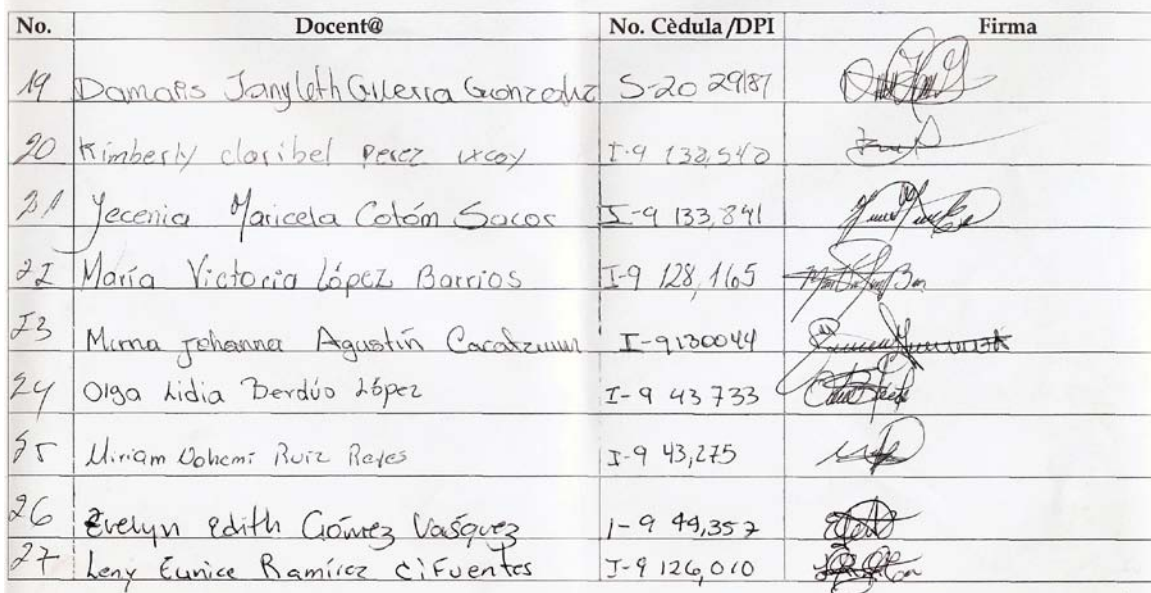 No. Docent@ No. Cèdula/DPI Firma
19 Damaris Jangleth Guerra Gonzalez S-20 29187
20 Kimberly claribel perez ixcoy I-9 132,540
21 Yecenia Maricela Cotóm Sacor I-9 133,841
22 María Victoria López Barrios I-9 128,165
23 Mirna Johanna Agustín Cacatzum I-9130044
24 Olga Lidia Berdúo López I-9 43 733
25 Miriam Nohemi Ruiz Reyes I-9 43,275
26 Evelyn Edith Gómez Vasquez I-9 44,357
27 Leny Eunice Ramírez CiFuentes I-9 126,010